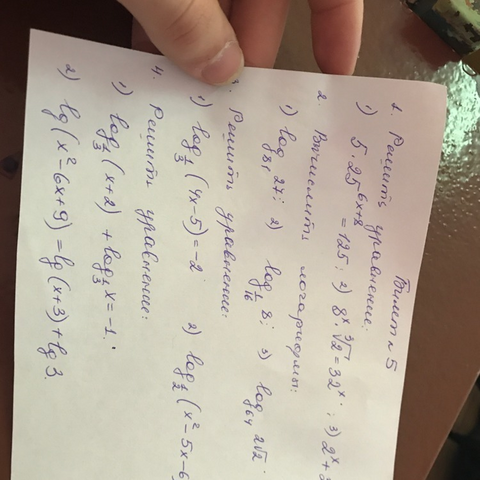 Билет № 5
1. Решить уравнение:
1) 5·25^(6x+8) = 125; 2) 8^x · √2 = 32^x; 3) 2^x +
2. Вычислить логарифмы:
1) log₈₁ 27; 2) log_(1/16) 8; 3) log₆₄ 2√2.
3. Решить уравнение:
1) log_(1/3) (4x-5) = -2 2) log_(1/2) (x² - 5x - 6
4. Решить уравнение:
1) log_(1/3) (x+2) + log_(1/3) x = -1.
2) lg(x² - 6x + 9) = lg(x+3) + lg 3.